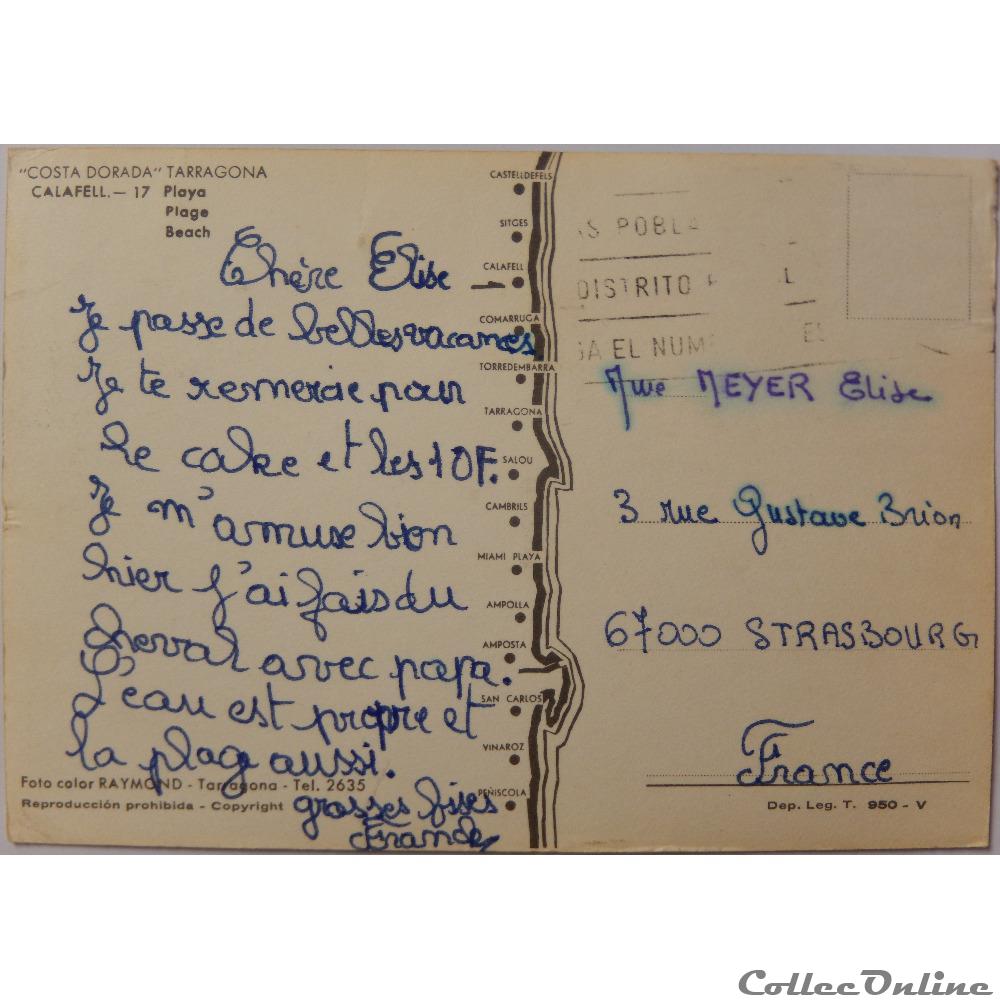 "COSTA DORADA" TARRAGONA
CALAFELL.— 17 Playa
Plage
Beach
Chère Elise
Je passe de belles vacances
Je te remercie pour
le cake et les 10F.
Je m'amuse bien
hier j'ai fais du
cheval avec papa.
L'eau est propre et
la plage aussi.
grosses bises
Foto color RAYMOND - Tarragona - Tel. 2635
Reproducción prohibida - Copyright
CASTELLDEFELS
SITGES
CALAFELL
COMARRUGA
TORREDEMBARRA
TARRAGONA
SALOU
CAMBRILS
MIAMI PLAYA
AMPOLLA
AMPOSTA
SAN CARLOS
VINAROZ
PEÑISCOLA
S POBLA
DISTRITO
GA EL NUM
Mme MEYER Elise
3 rue Gustave Brion
67000 STRASBOURG
France
Dep. Leg. T. 950 - V
CollecOnline